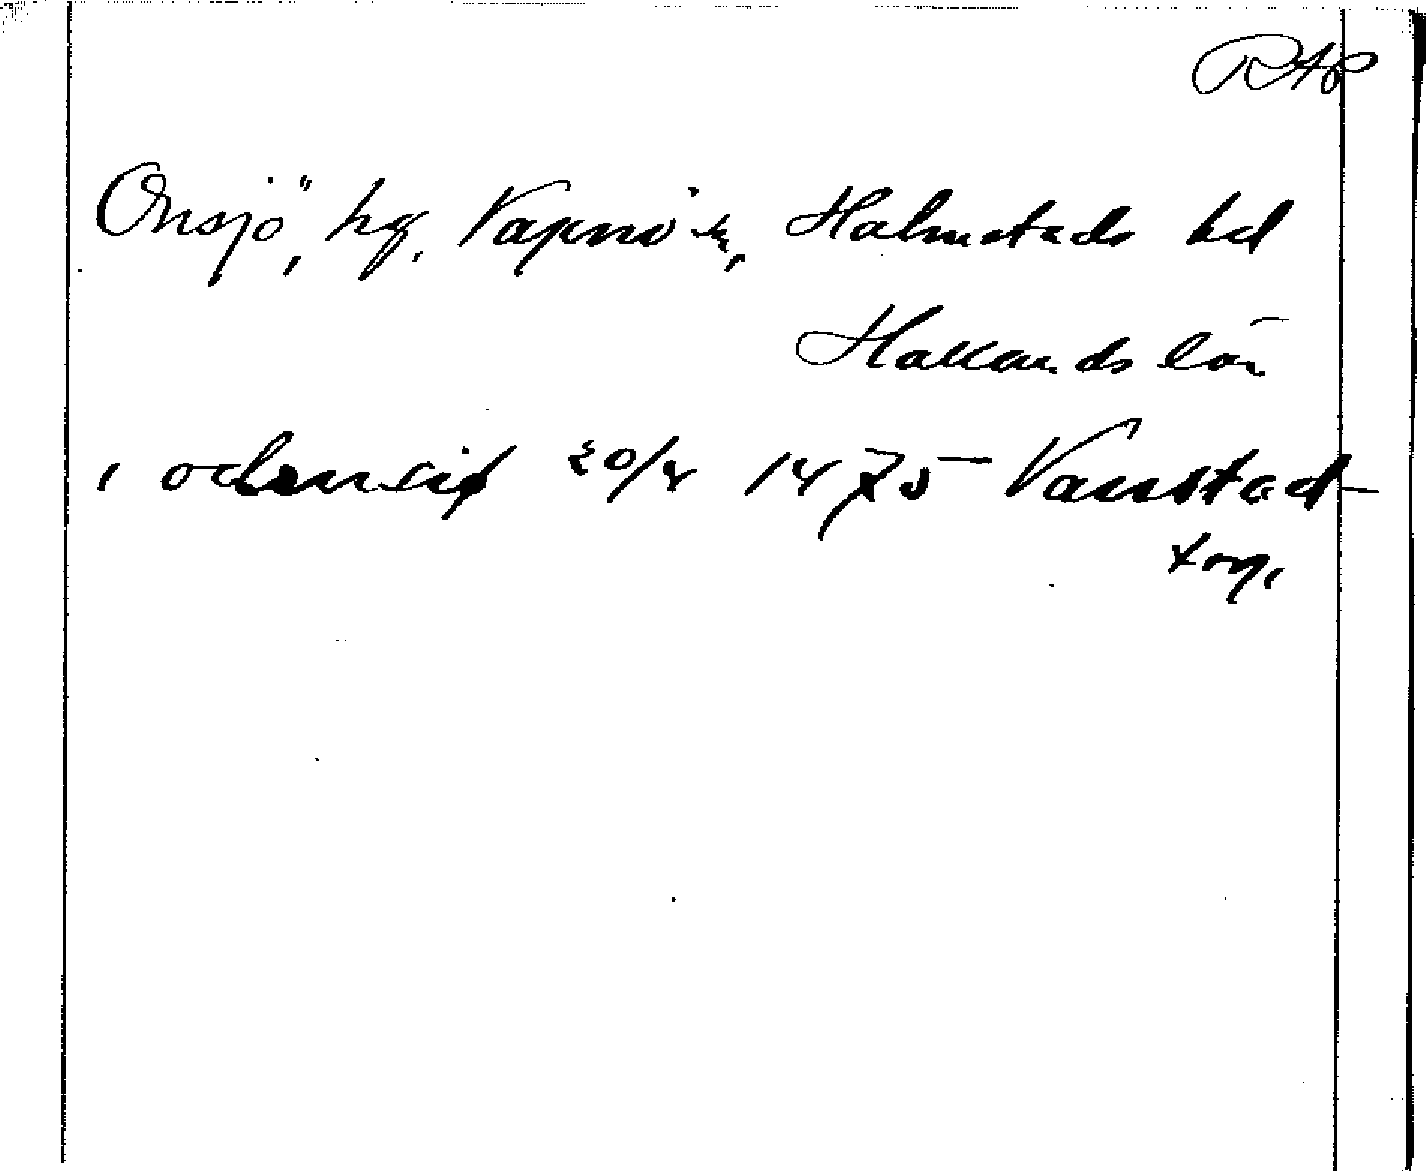 RAP
Onsjö, hg, Vapnö sn, Halmstads hd
Hallands län
i odensiö 20/4 1475 Vanstad-
torp.